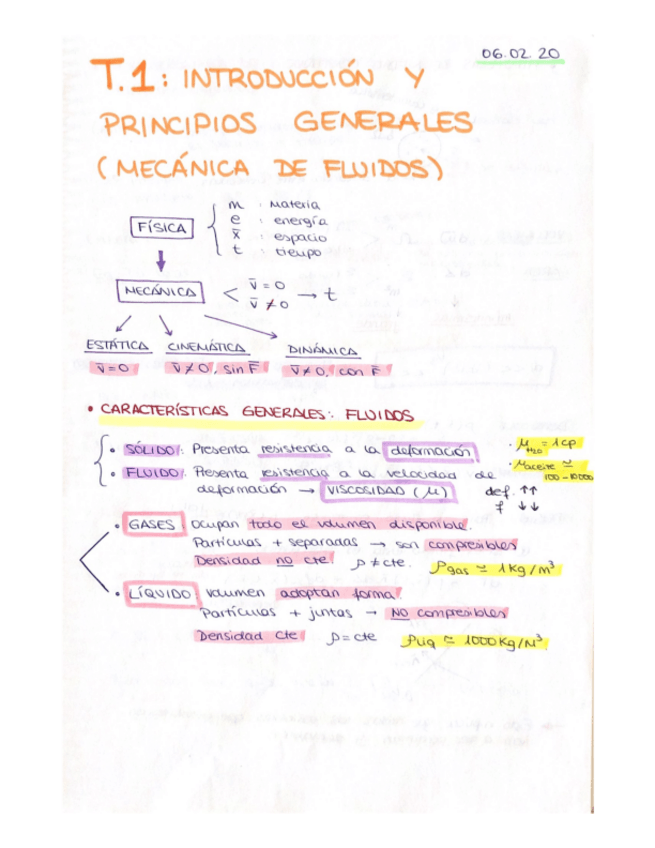 06.02.20
T.1: INTRODUCCIÓN Y
PRINCIPIOS GENERALES
(MECÁNICA DE FLUIDOS)
FÍSICA
m : Materia
e : energía
x̄ : espacio
t : tiempo
MECÁNICA < v̄ = 0
v̄ ≠ 0 → t
ESTÁTICA CINEMÁTICA DINÁMICA
v̄=0 v̄≠0, sin F̄ v̄≠0, con F̄
• CARACTERÍSTICAS GENERALES: FLUIDOS
• SÓLIDO: Presenta resistencia a la deformación
• FLUIDO: Presenta resistencia a la velocidad de
deformación → VISCOSIDAD (μ)
• μH2O = 1cp
• μaceite ≃
100-10000
def. ↑↑
f ↓↓
• GASES Ocupan todo el volumen disponible.
Partículas + separadas → son compresibles
Densidad no cte ρ≠cte. ρgas ≃ 1Kg/m³
• LÍQUIDO volumen adoptan forma
Partículas + juntas → NO compresibles
Densidad Cte ρ=cte ρliq ≃ 1000Kg/M³.